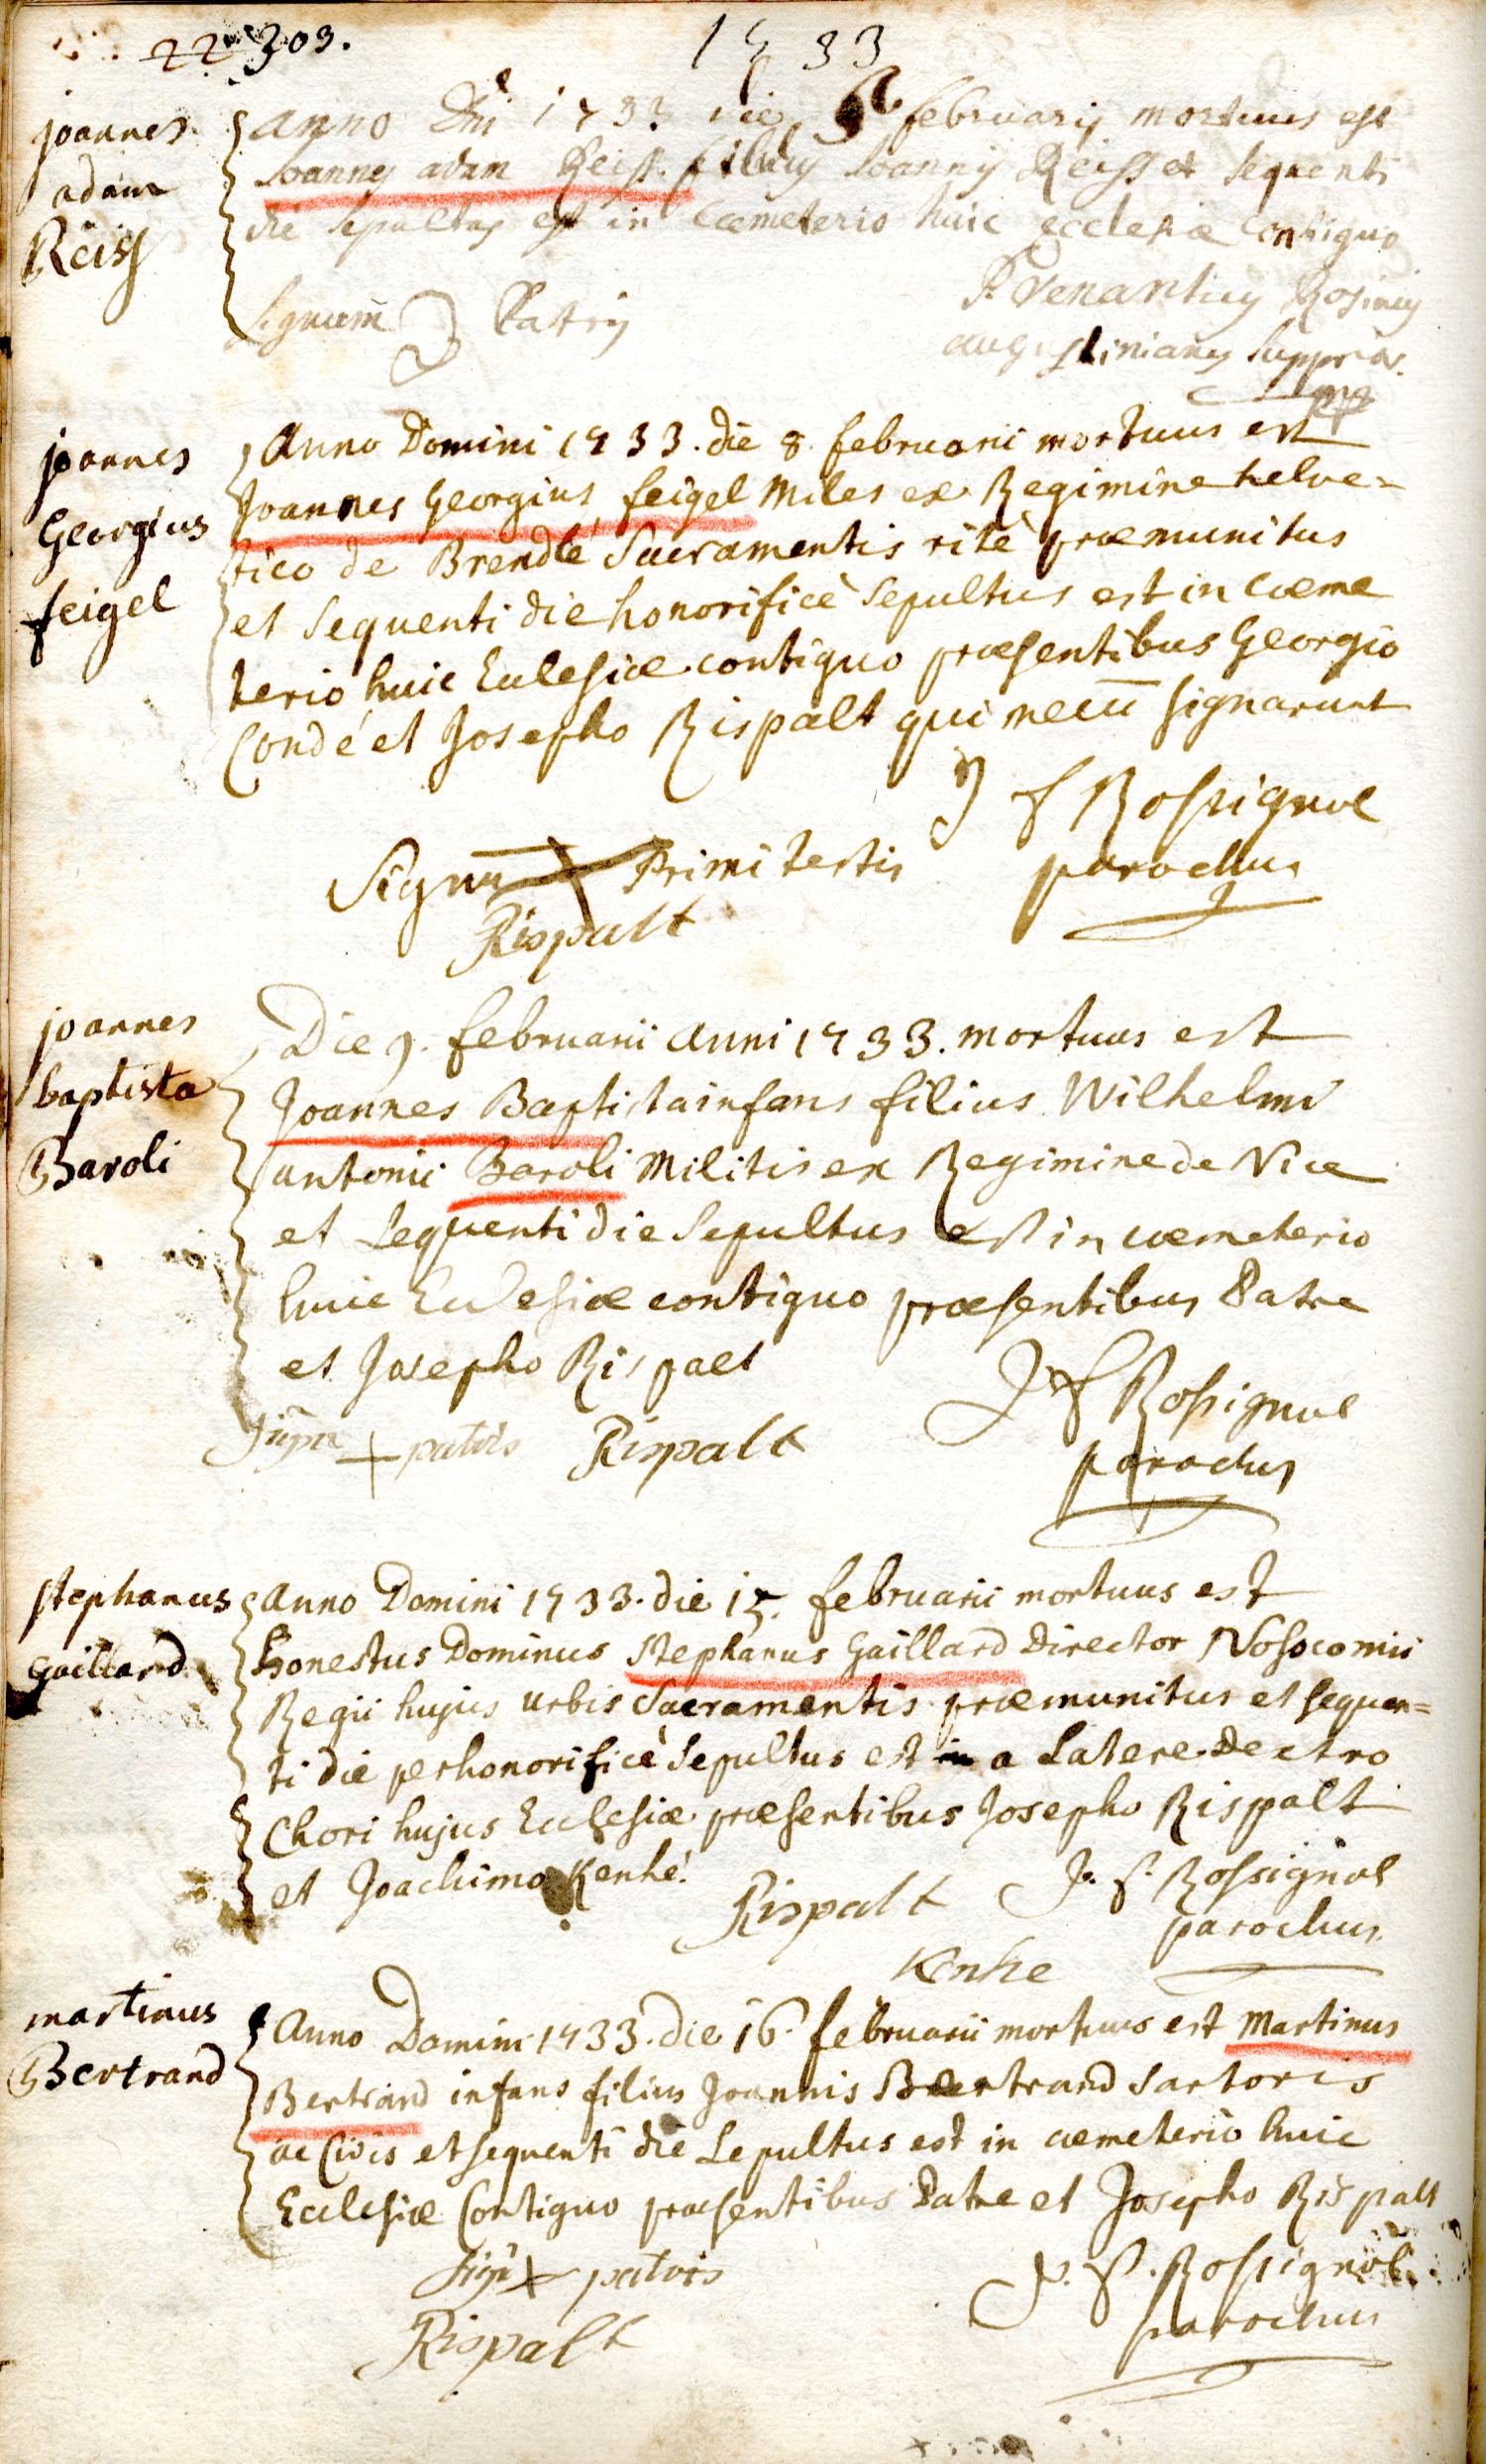 22 303.
1733
joannes
adam
Reiss
anno Dni 1733 die 6 februarij mortuus est
Joannes adam Reiss filius Joannis Reiss et sequenti
die sepultus est in Coemeterio huic ecclesiæ contiguo
P. Venantius Rosiney
augustinianus supprior
Signum Patris
mp
joannes
Georgius
feigel
Anno Domini 1733. die 8. februarii mortuus est
Joannes Georgius feigel Miles ex Regimine helve=
tico de Brendlé Sacramentis ritè præmunitus
et sequenti die honorificè sepultus est in cæme
terio huic Ecclesiæ contiguo præsentibus Georgio
Condé et Josepho Rispalt qui mecū signarunt
J f Rossignol
parochus
Signū + Primi testis
Rispalt
joannes
baptista
Baroli
Die 9. februarii anni 1733. mortuus est
Joannes Baptista infans filius Wilhelmi
antonii Baroli Militis ex Regimine de Nice
et sequenti die sepultus est in cæmeterio
huic Ecclesiæ contiguo præsentibus Patre
et Josepho Rispalt
J f Rossignol
parochus
Signū + patris Rispalt
stephanus
gaillard
Anno Domini 1733. die 15. februarii mortuus est
honestus Dominus stephanus Gaillard Director Nosocomii
Regii hujus urbis Sacramentis præmunitus et sequen=
ti die perhonorificè sepultus est a Latere Dextro
Chori hujus Ecclesiæ præsentibus Josepho Rispalt
et Joachimo Kenhé.
Rispalt
J. f. Rossignol
parochus
Kenhe
martinus
Bertrand
Anno Domini 1733. die 16. februarii mortuus est Martinus
Bertrand infans filius Joannis Bertrand Sartoris
ac Civis et sequenti die Sepultus est in cæmeterio huic
Ecclesiæ Contiguo præsentibus Patre et Josepho Rispalt
Signū + patris
J. f. Rossignol
parochus
Rispalt